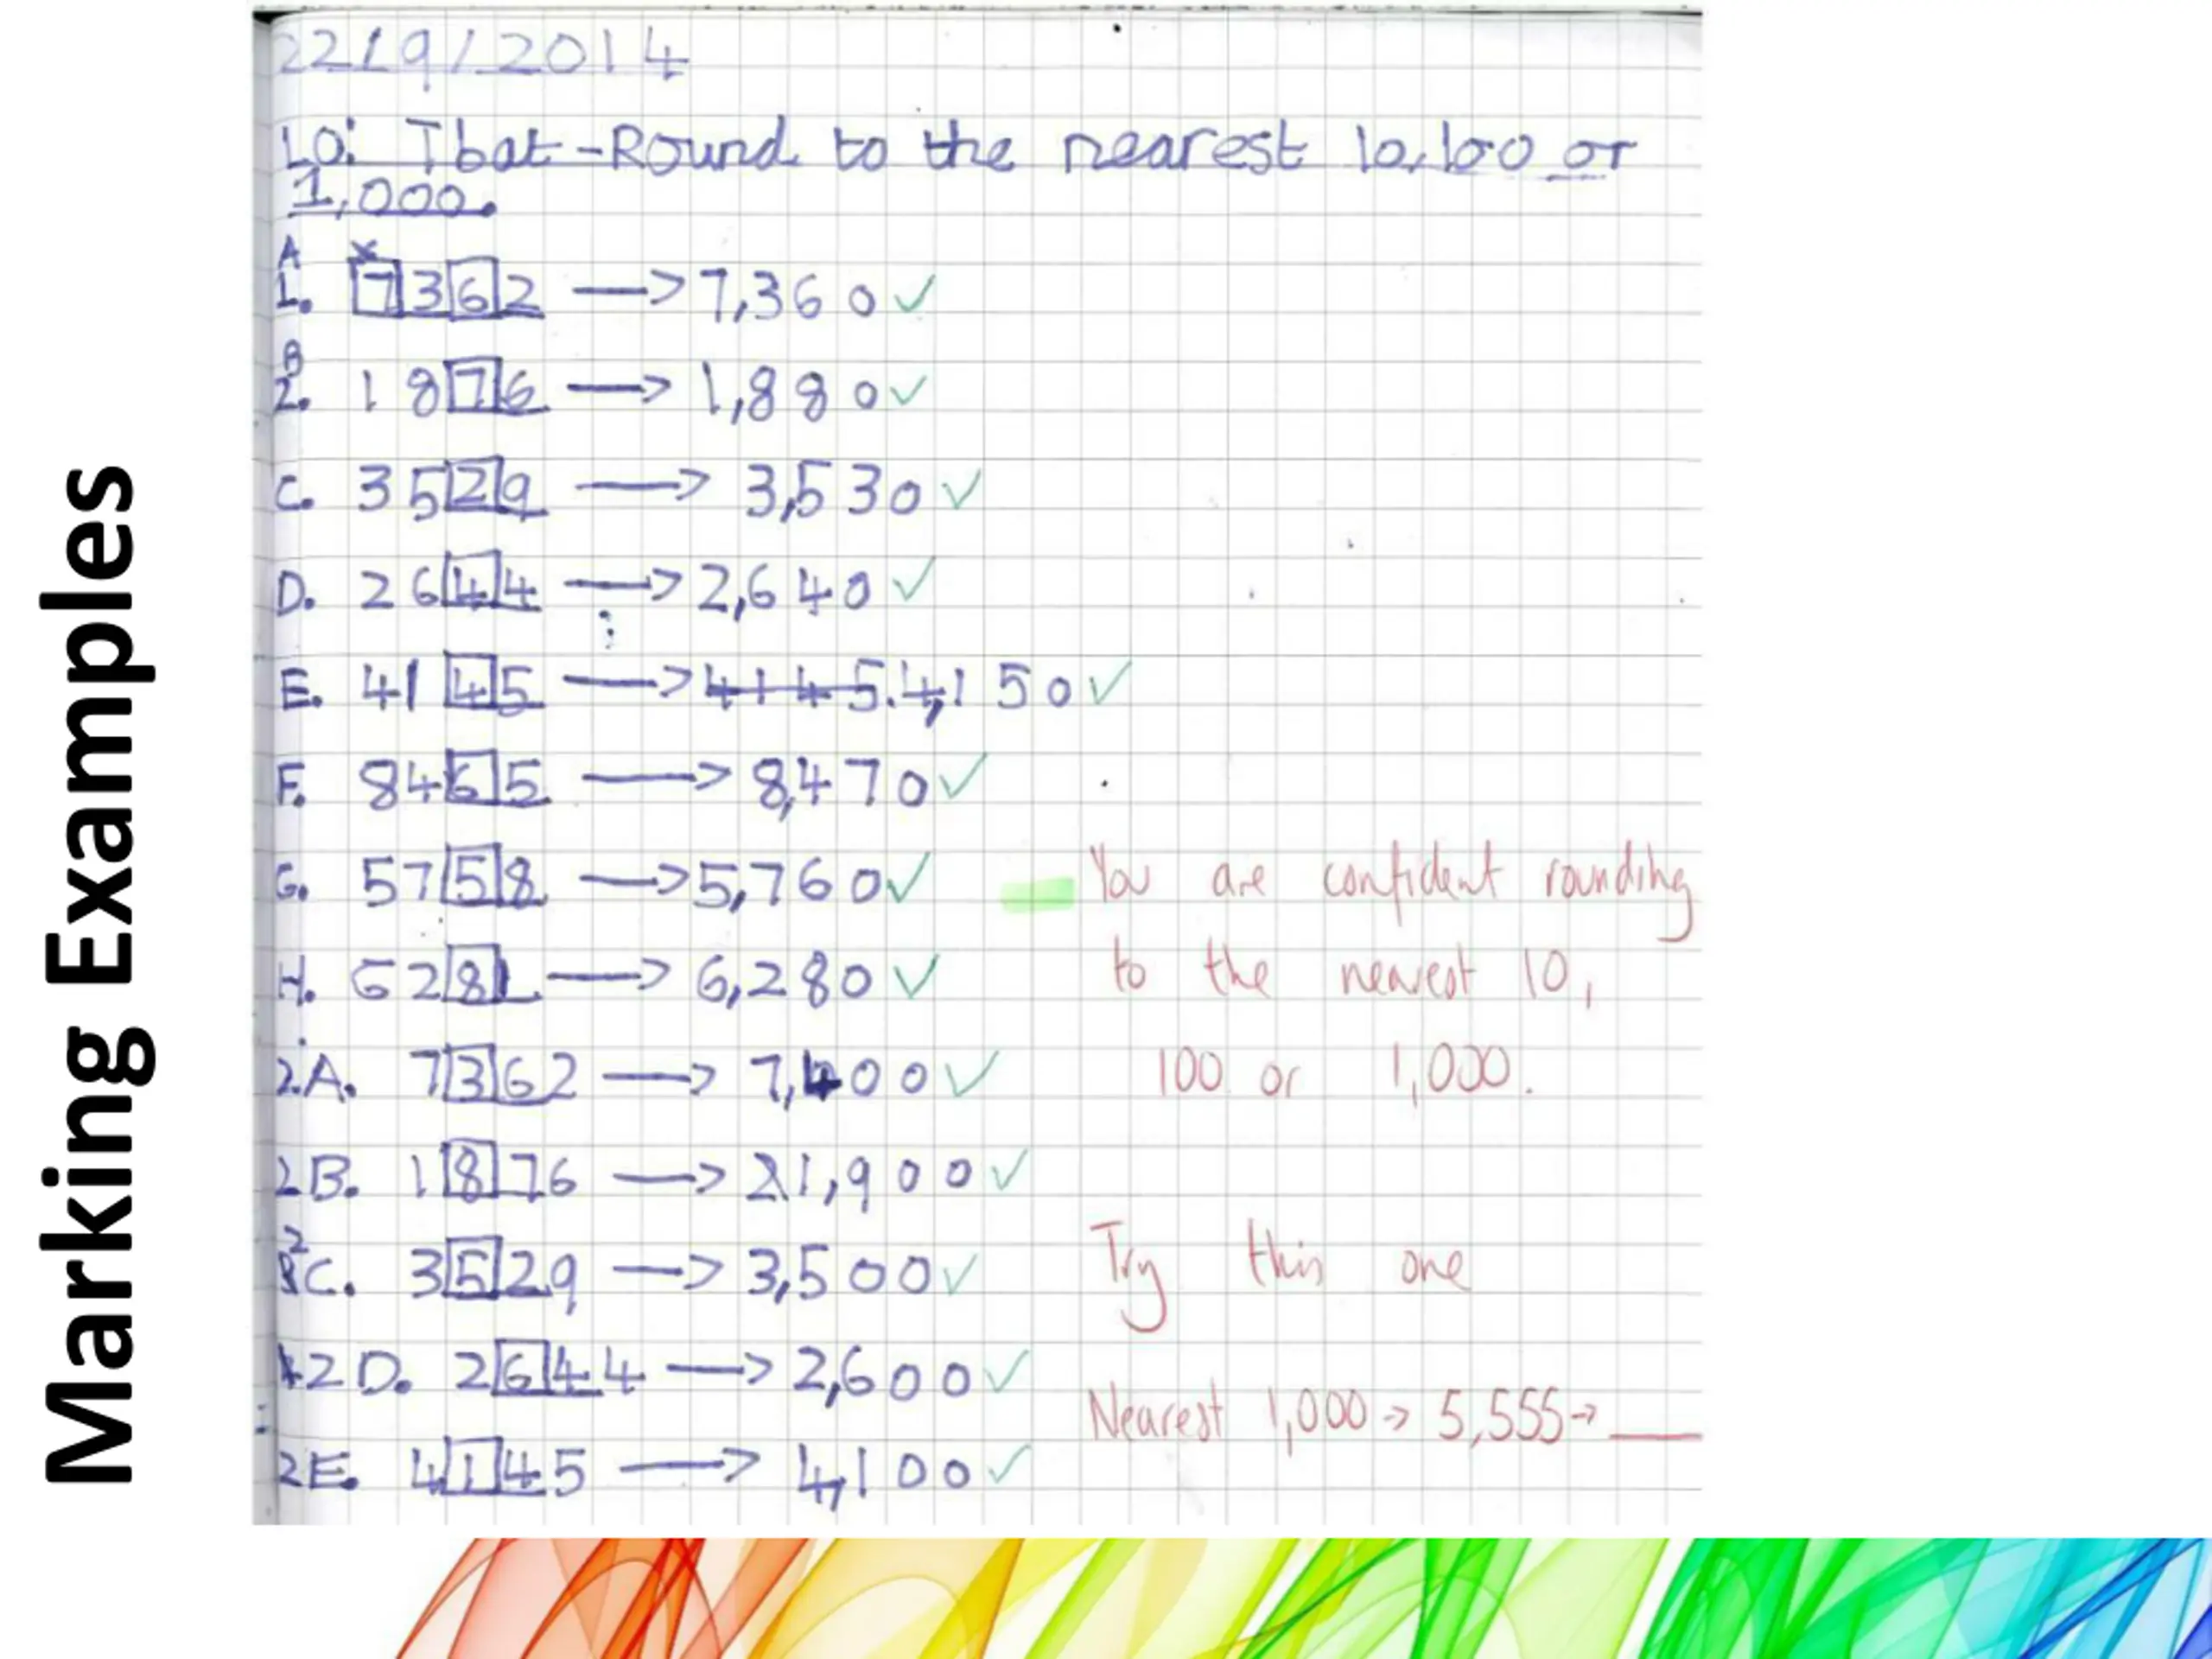 Marking Examples
22/9/2014
LO: Tbat-Round to the nearest 10,100 or
1,000.
A
1. 7362 → 7,360 ✓
B
2. 1876 → 1,880 ✓
C. 3529 → 3,530 ✓
D. 2644 → 2,640 ✓
E. 4145 → 4145. 4,150 ✓
F. 8465 → 8,470 ✓
G. 5758 → 5,760 ✓
H. 6281 → 6,280 ✓
2.A. 7362 → 7,400 ✓
2B. 1876 → 1,900 ✓
2C. 3529 → 3,500 ✓
2D. 2644 → 2,600 ✓
2E. 4145 → 4,100 ✓
You are confident rounding
to the nearest 10,
100 or 1,000.
Try this one
Nearest 1,000 → 5,555 → ____